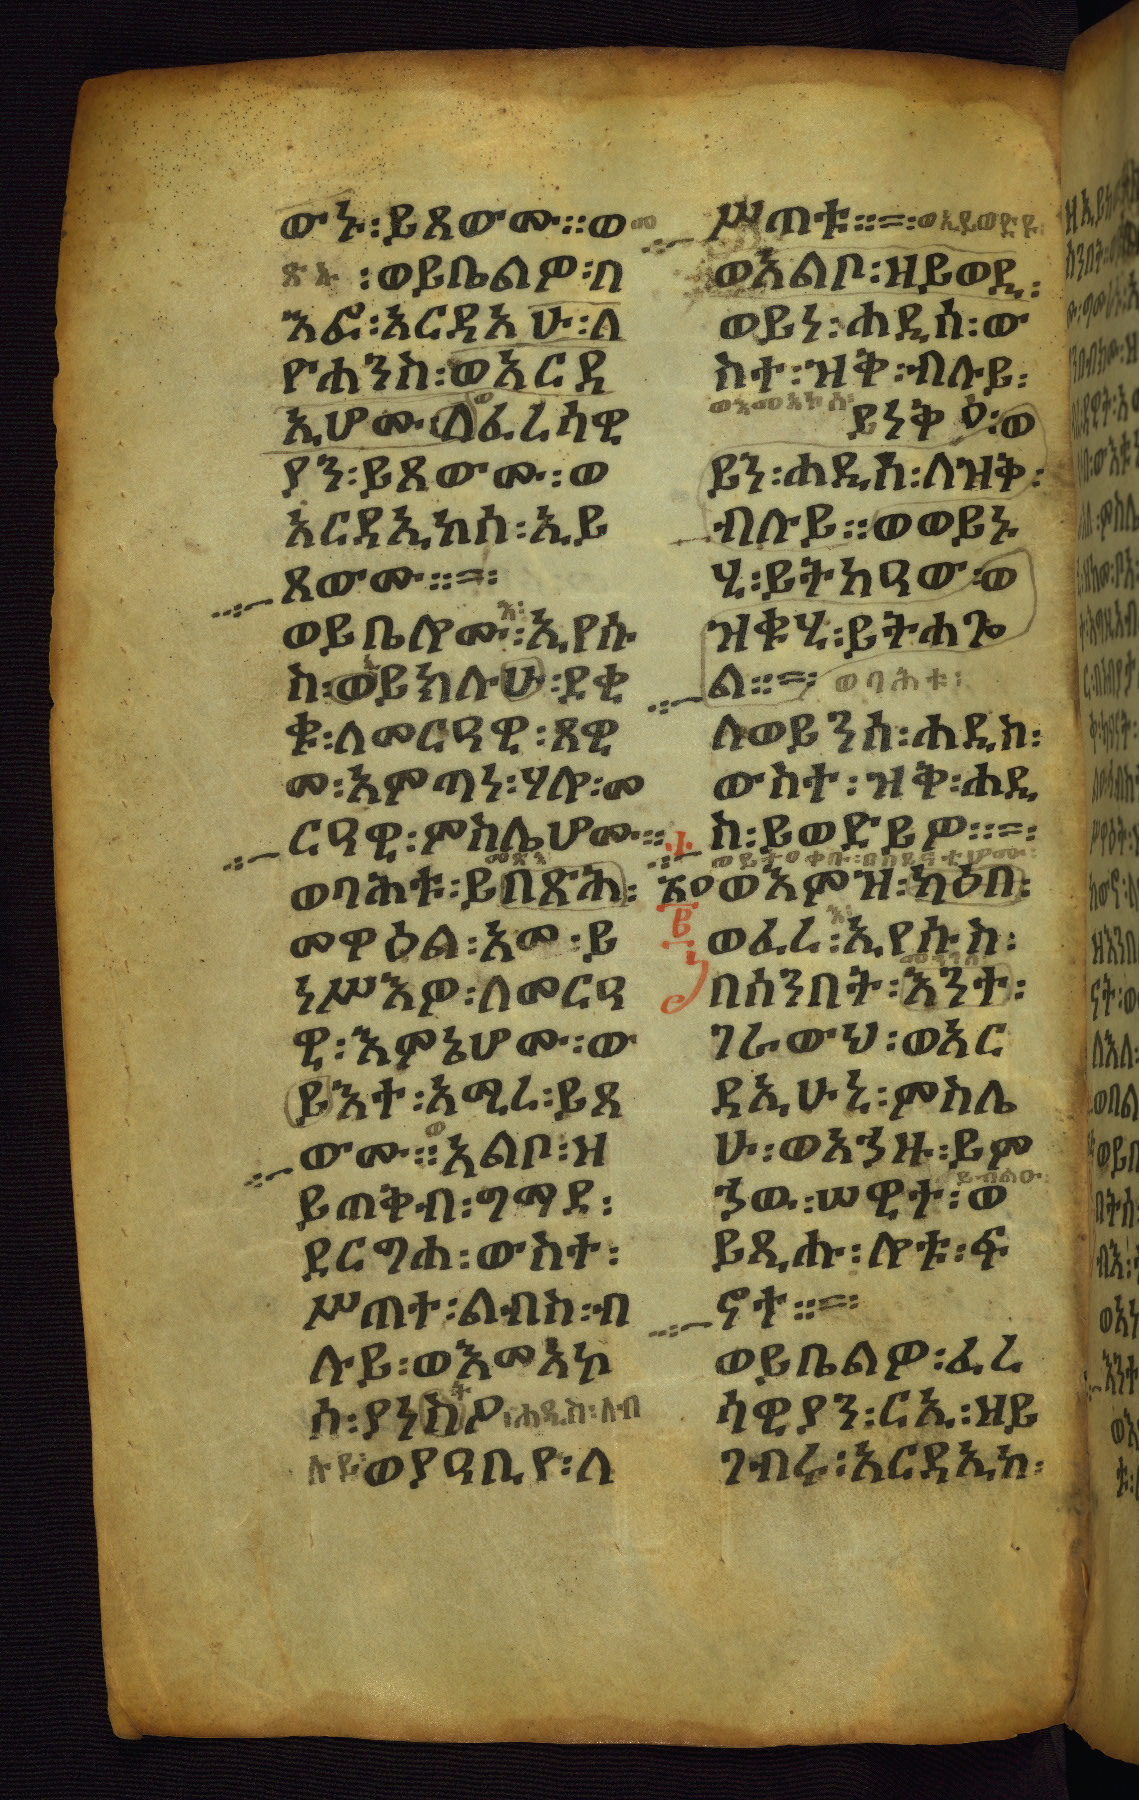 ውኑ፡ይጸውሙ።ወመ
ጽኡ፡ወይቤልዎ፡በ
እፎ፡አርዳአሁ፡ለ
ዮሐንስ፡ወአርዳ
ኢሆሙ፡ለፈሪሳዊ
ያን፡ይጸውሙ፡ወ
አርዳኢከሰ፡ኢይ
ጸውሙ።=፡
ወይቤሎሙ፡ኢየሱ
ስ፡ወይክሉሁ፡ደቂ
ቁ፡ለመርዓዊ፡ጸዊ
መ፡አምጣነ፡ሃሎ፡መ
ርዓዊ፡ምስሌሆሙ።
ወባሕቱ፡ይበጽሕ፡
መዋዕል፡አመ፡ይ
ነሥእዎ፡ለመርዓ
ዊ፡እምኔሆሙ፡ው
ይእተ፡አሚረ፡ይጸ
ውሙ።አልቦ፡ዘ
ይጠቅብ፡ግማደ፡
ደርግሐ፡ውስተ፡
ሥጠተ፡ልብስ፡ብ
ሉይ፡ወእመአኮ
ሰ፡ያነስዖ፡ሐዲስ፡ለብ
ሉይ፡ወያዓቢዮ፡ለ
ሥጠቱ።=፡ወኢይወድዩ
ወአልቦ፡ዘይወዲ፡
ወይነ፡ሐዲሰ፡ው
ስተ፡ዝቅ፡ብሉይ፡
ወእመአኮሰ፡
ይነቅዖ፡ወ
ይን፡ሐዲስ፡ለዝቅ፡
ብሉይ።ወወይኑ
ሂ፡ይትከዓው፡ወ
ዝቁሂ፡ይትሐጐ
ል።=፡ወባሕቱ፡
ለወይንሰ፡ሐዲስ፡
ውስተ፡ዝቅ፡ሐዲ
ስ፡ይወድይዎ።=፡
ወእምዝ፡ካዕበ፡
ወፈረ፡ኢየሱስ፡
በሰንበት፡እንተ፡
ገራውህ፡ወአር
ዳኢሁኒ፡ምስሌ
ሁ፡ወአኀዙ፡ይም
ኀዉ፡ሠዊተ፡ወ
ይጺሑ፡ሎቱ፡ፍ
ኖተ።=፡
ወይቤልዎ፡ፈሪ
ሳዊያን፡ርኢ፡ዘይ
ገብሩ፡አርዳኢከ፡